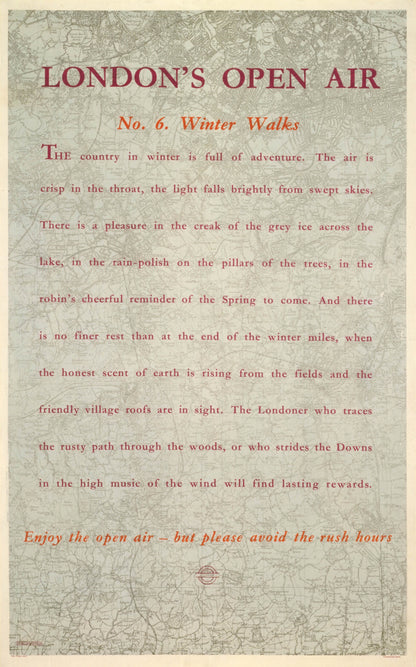 LONDON'S OPEN AIR
No. 6. Winter Walks
THE country in winter is full of adventure. The air is
crisp in the throat, the light falls brightly from swept skies.
There is a pleasure in the creak of the grey ice across the
lake, in the rain-polish on the pillars of the trees, in the
robin's cheerful reminder of the Spring to come. And there
is no finer rest than at the end of the winter miles, when
the honest scent of earth is rising from the fields and the
friendly village roofs are in sight. The Londoner who traces
the rusty path through the woods, or who strides the Downs
in the high music of the wind will find lasting rewards.
Enjoy the open air – but please avoid the rush hours